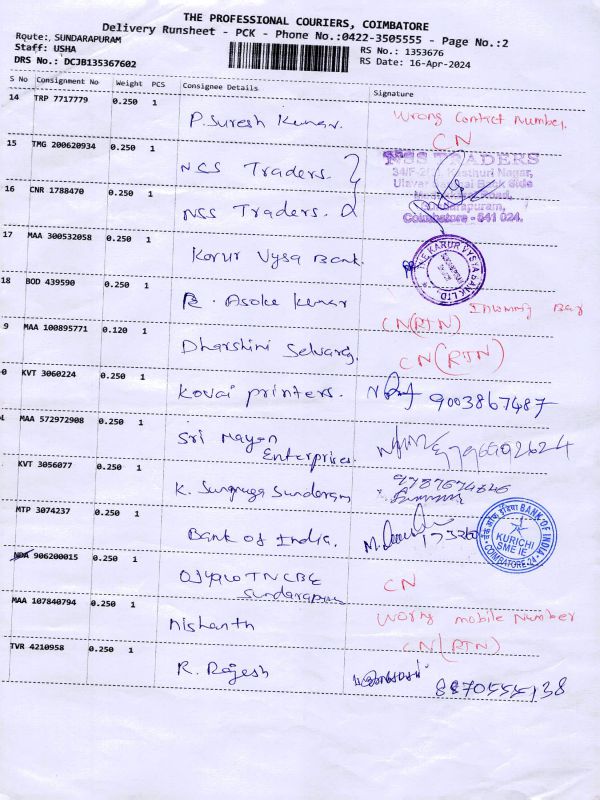 THE PROFESSIONAL COURIERS, COIMBATORE
Delivery Runsheet - PCK - Phone No.:0422-3505555 - Page No.:2
Route: SUNDARAPURAM
Staff: USHA
DRS No.: DCJB135367602
RS No.: 1353676
RS Date: 16-Apr-2024
S No Consignment No Weight PCS Consignee Details Signature
14 TRP 7717779 0.250 1 P. Suresh Kumar. Wrong Contact Number.
CN
15 TMG 200620934 0.250 1 NCS Traders.
NSS TRADERS
Coimbatore - 641 024.
16 CNR 1788470 0.250 1 NSS Traders.
17 MAA 300532058 0.250 1 Karur Vysa Bank.
THE KARUR VYSYA BANK LTD.
18 BOD 439590 0.250 1 Asoke Kumar
CN(RTN)
9 MAA 100895771 0.120 1 Dharshini Selvaraj.
CN(RTN)
0 KVT 3060224 0.250 1 Kovai printers. 9003867487
MAA 572972908 0.250 1 Sri Mayan
Enterprises
KVT 3056077 0.250 1 K. Sundaram
9787674646
MTP 3074237 0.250 1 Bank of India.
BANK OF INDIA
KURICHI
SME IE
COIMBATORE-21
NDA 906200015 0.250 1 TNCBE
Sundarapuram
CN
MAA 107840794 0.250 1 Nishanth
Worng mobile Number
CN(RTN)
TVR 4210958 0.250 1 R. Rajesh